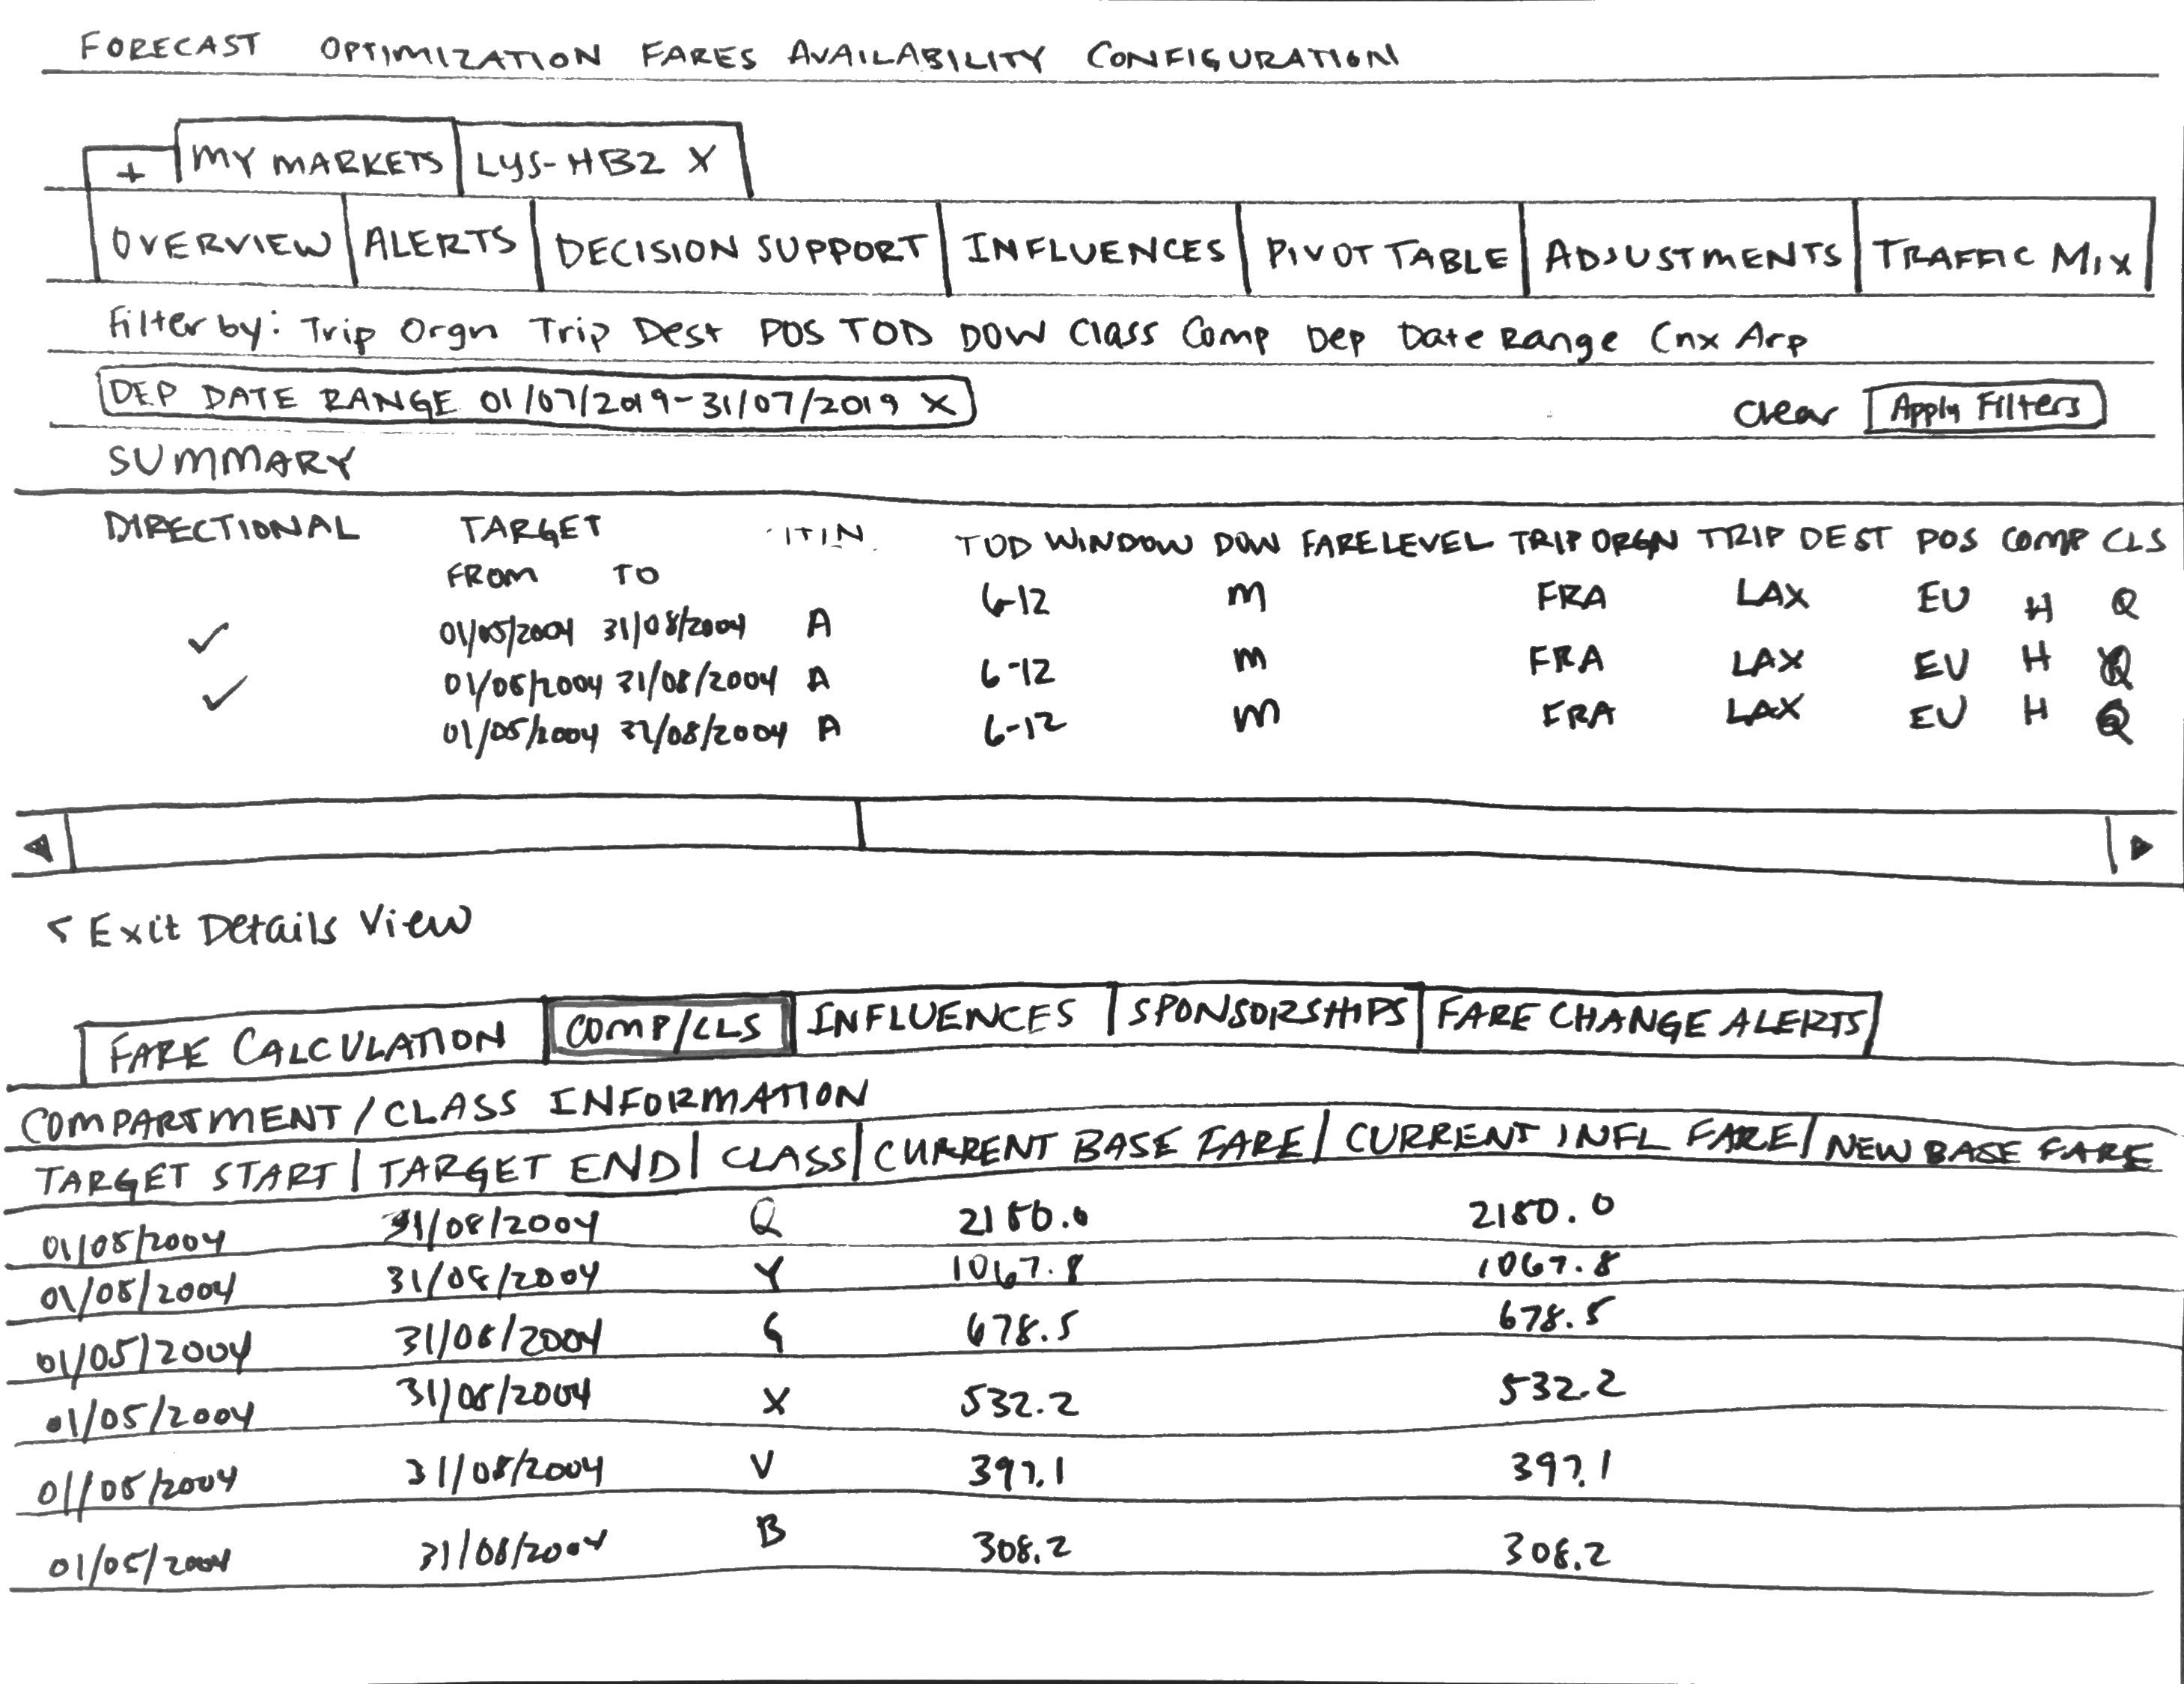 FORECAST OPTIMIZATION FARES AVAILABILITY CONFIGURATION
+ MY MARKETS LYS-HB2 X
OVERVIEW ALERTS DECISION SUPPORT INFLUENCES PIVOT TABLE ADJUSTMENTS TRAFFIC MIX
Filter by: Trip Orgn Trip Dest POS TOD DOW Class Comp Dep Date Range Cnx Arp
DEP DATE RANGE 01/07/2019-31/07/2019 X Clear Apply Filters
SUMMARY
DIRECTIONAL TARGET ITIN TOD WINDOW DOW FARE LEVEL TRIP ORGN TRIP DEST POS COMP CLS
FROM TO
✓ 01/05/2004 31/08/2004 A 6-12 M FRA LAX EU H Q
✓ 01/05/2004 31/08/2004 A 6-12 M FRA LAX EU H Q
01/05/2004 31/08/2004 A 6-12 M FRA LAX EU H Q
< Exit Details View
FARE CALCULATION COMP/CLS INFLUENCES SPONSORSHIPS FARE CHANGE ALERTS
COMPARTMENT/CLASS INFORMATION
TARGET START | TARGET END | CLASS | CURRENT BASE FARE | CURRENT INFL FARE | NEW BASE FARE
01/05/2004 31/08/2004 Q 2180.0 2180.0
01/05/2004 31/08/2004 Y 1067.8 1067.8
01/05/2004 31/08/2004 G 678.5 678.5
01/05/2004 31/08/2004 X 532.2 532.2
01/05/2004 31/08/2004 V 397.1 397.1
01/05/2004 31/08/2004 B 308.2 308.2